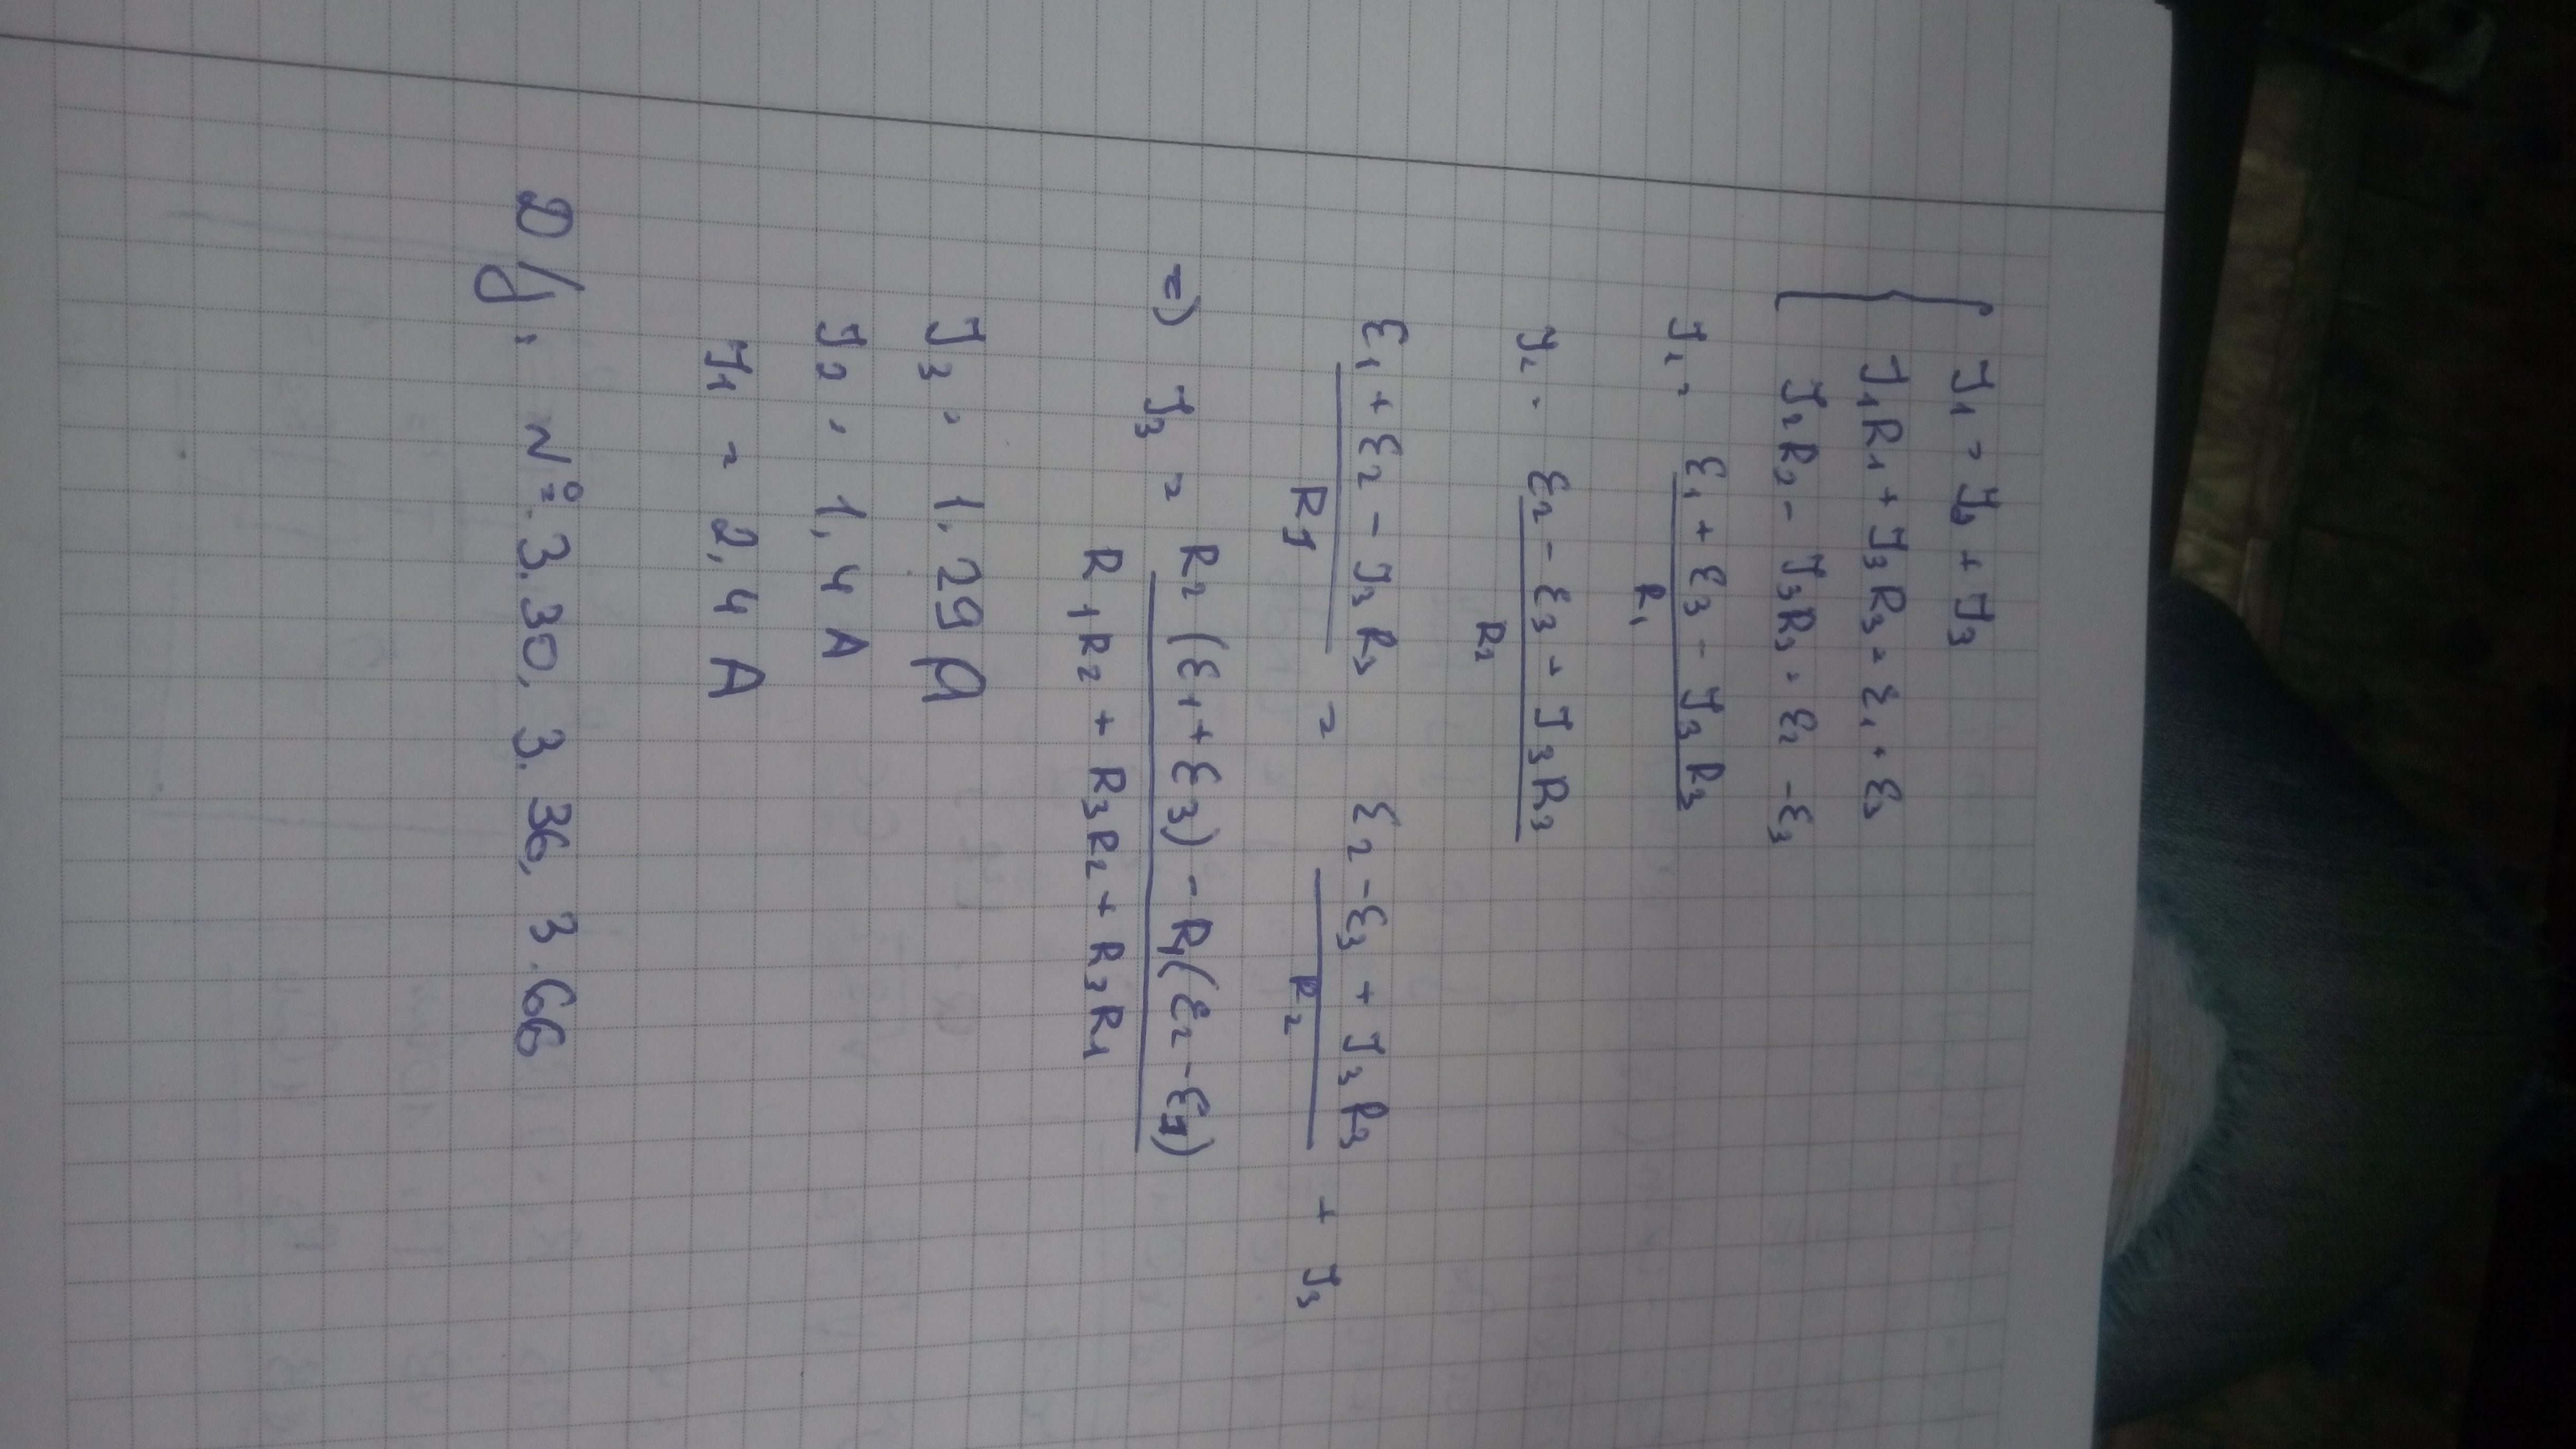 J₁ = J₂ + J₃
J₁R₁ + J₃R₃ = ε₁ + ε₃
J₂R₂ - J₃R₃ = ε₂ - ε₃
J₁ = (ε₁ + ε₃ - J₃R₃) / R₁
J₂ = (ε₂ - ε₃ + J₃R₃) / R₂
(ε₁ + ε₂ - J₃R₃) / R₁ = (ε₂ - ε₃ + J₃R₃) / R₂ + J₃
=) J₃ = (R₂(ε₁ + ε₃) - R₁(ε₂ - ε₃)) / (R₁R₂ + R₃R₂ + R₃R₁)
J₃ = 1,29 A
J₂ = 1,4 A
J₁ = 2,4 A
D/y: № 3.30, 3.36, 3.66